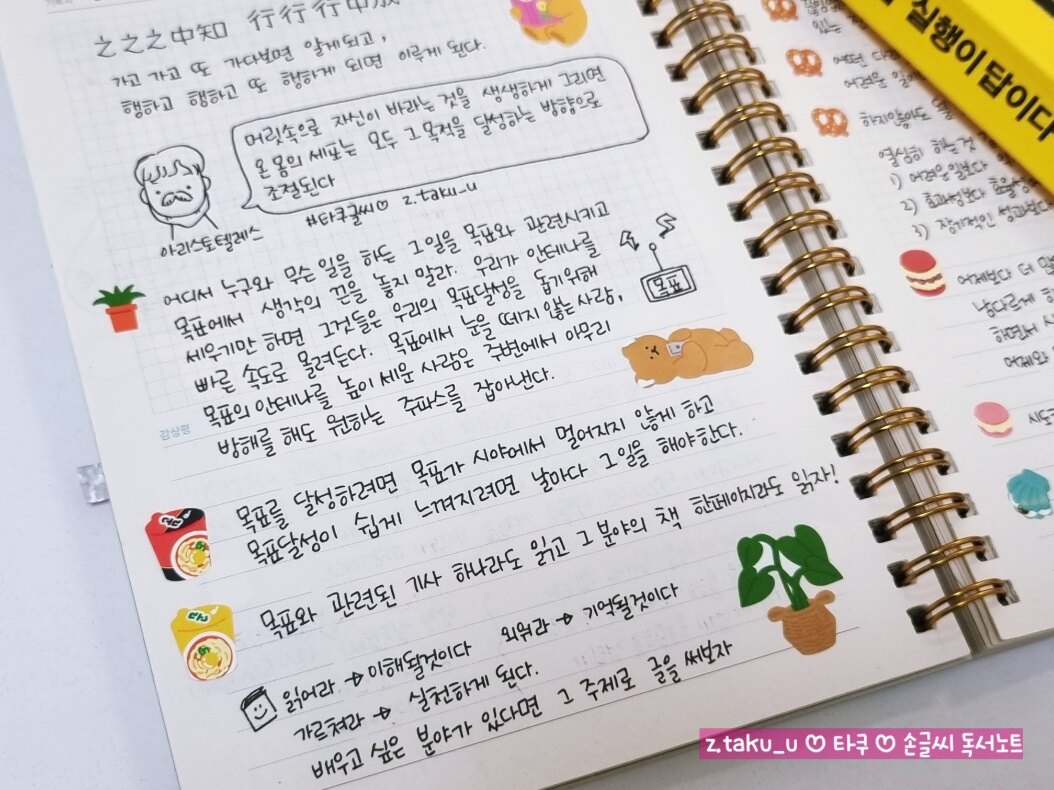 之之之中知 行行行中成
가고 가고 또 가다보면 알게되고,
행하고 행하고 또 행하게 되면 이루게 된다.
머릿속으로 자신이 바라는 것을 생생하게 그리면
온 몸의 세포는 모두 그 목적을 달성하는 방향으로
조절된다
#타쿠글씨♡ z.taku_u
아리스토텔레스
어디서 누구와 무슨 일을 하든 그 일을 목표와 관련시키고
목표에서 생각의 끈을 놓지 말라. 우리가 안테나를
세우기만 하면 그것들은 우리의 목표달성을 돕기위해
빠른 속도로 몰려든다. 목표에서 눈을 떼지 않는 사람,
목표의 안테나를 높이 세운 사람은 주변에서 아무리
방해를 해도 원하는 주파수를 잡아낸다.
목표
감상평
목표를 달성하려면 목표가 시야에서 멀어지지 않게 하고
목표달성이 쉽게 느껴지려면 날마다 그 일을 해야한다.
목표와 관련된 기사 하나라도 읽고 그 분야의 책 한페이지라도 읽자!
읽어라 → 이해될것이다 외워라 → 기억될것이다
가르쳐라 → 실천하게 된다.
배우고 싶은 분야가 있다면 그 주제로 글을 써보자
실행이 답이다
있는
어떤 다
어려운 일이
하지않아도
열심히 하는 것
1) 어려운 일보다
2) 효과성보다 효율성
3) 장기적인 성과보다
어제보다 더
남다르게
하면서
어제와
시도
z.taku_u ♡ 타쿠 ♡ 손글씨 독서노트